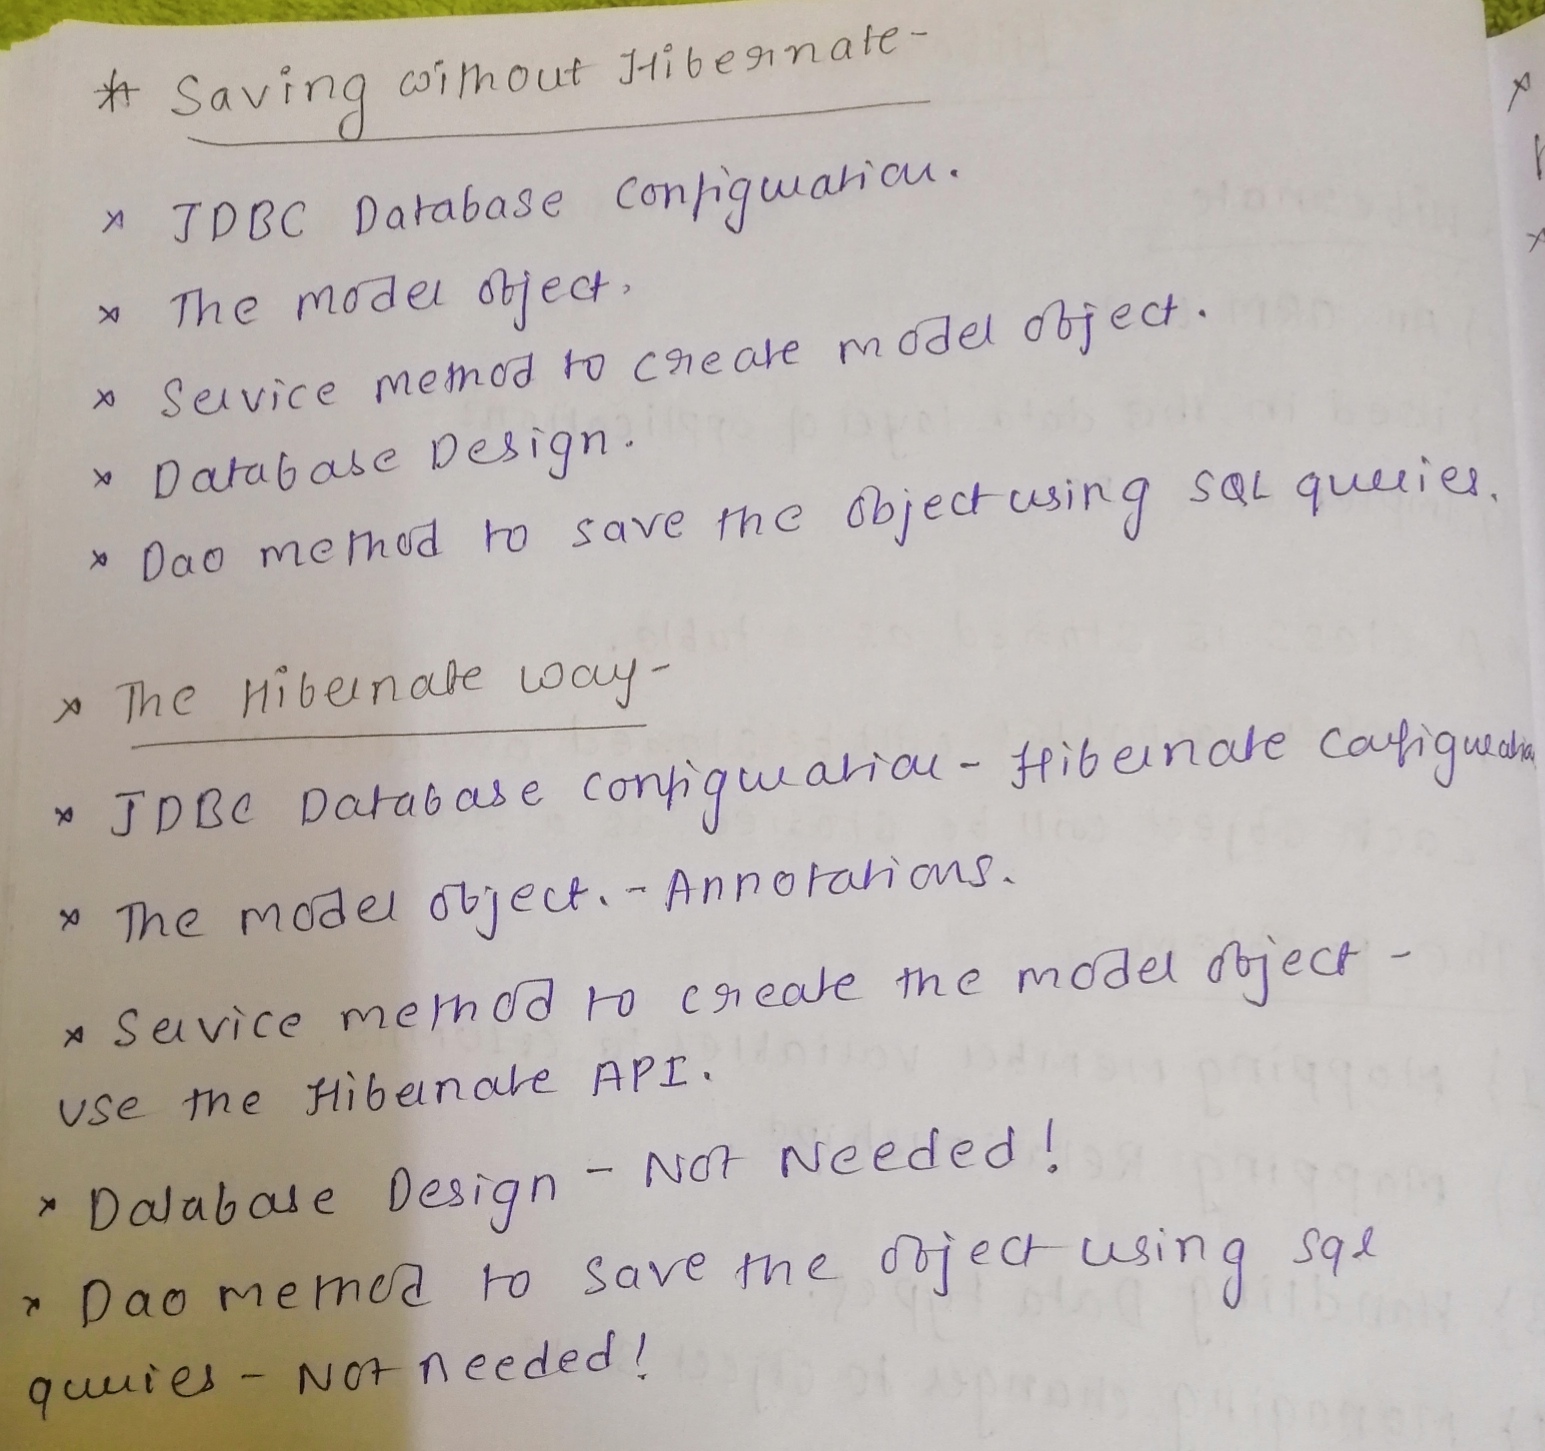 * Saving without Hibernate -
* JDBC Database Configuration.
* The model object.
* Service method to create model object.
* Database Design.
* Dao method to save the object using SQL queries.
* The Hibernate way -
* JDBC Database configuration - Hibernate Configuration
* The model object. - Annotations.
* Service method to create the model object -
use the Hibernate API.
* Database Design - Not Needed!
* Dao method to save the object using sql
queries - Not needed!